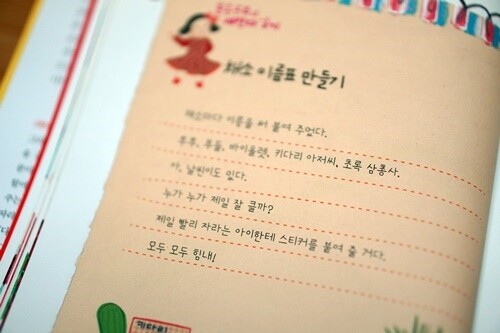 채소 이름표 만들기
채소마다 이름을 써 붙여 주었다.
루루, 루돌, 바이올렛, 키다리 아저씨, 초록 삼총사.
아, 날씬이도 있다.
누가 누가 제일 잘 클까?
제일 빨리 자라는 아이한테 스티커를 붙여 줄 거다.
모두 모두 힘내!
키다리